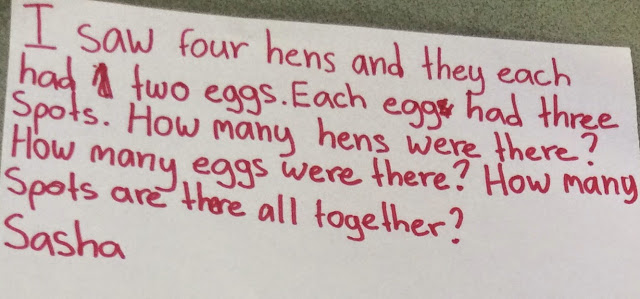 I saw four hens and they each
had two eggs. Each egg had three
Spots. How many hens were there?
How many eggs were there? How many
Spots are there all together?
Sasha